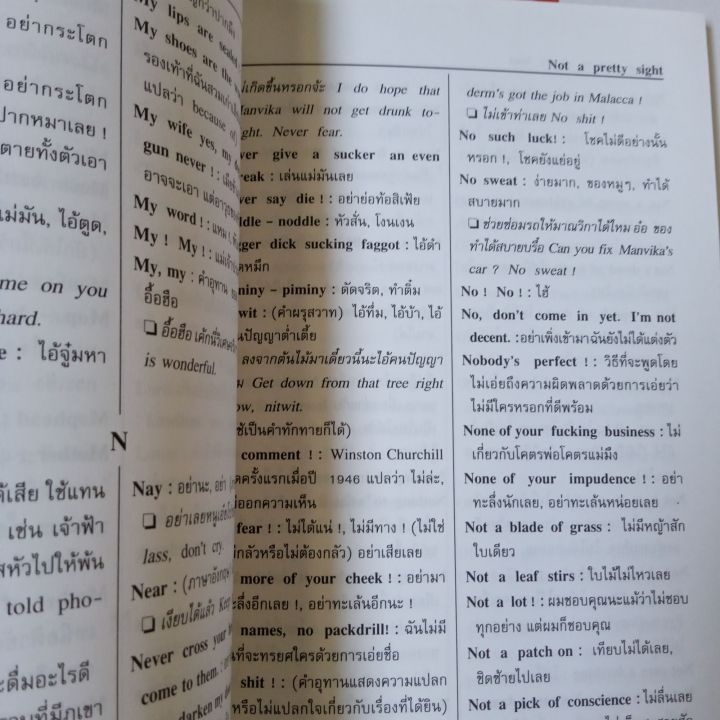 อย่ากระโตก
อย่ากระโตก
ปากหมาเลย !
ตายทั้งตัวเอา
แม่มัน, ไอ้ตูด,
me on you
hard.
: ไอ้จู๋มหา
ได้เสีย ใช้แทน
เช่น เจ้าฟ้า
told pho-
จะดื่มอะไรดี
My lips are
My shoes are the
รองเท้าที่ฉันสวม
แปลว่า because of
My wife yes, my
gun never ! :
อาจจะเอา แต่อาวุธ
My word ! :
My ! My ! :
My, my : คำอุทาน
อื้อฮือ
❏ อื้อฮือ เค้กนี่วิเศษ
is wonderful.
N
Nay : อย่านะ, อย่า
❏ อย่าเลยหนู
lass, don't cry.
Near : (ภาษาอังกฤษ
❏ เงียบได้แล้ว
Never cross your
come to them. :
darken my
Not a pretty sight
เกิดขึ้นหรอกจ้ะ I do hope that
Manvika will not get drunk to-
ght. Never fear.
ver give a sucker an even
reak : เล่นแม่มันเลย
ver say die ! : อย่าย่อท้อสิเฟ้ย
ddle - noddle : หัวสั่น, โงนเงน
gger dick sucking faggot : ไอ้ดำ
ดหมึก
niny - piminy : ดัดจริต, ทำติ๋ม
wit : (คำผรุสวาท) ไอ้ทึ่ม, ไอ้บ้า, ไอ้
นปัญญาต่ำเตี้ย
ลงจากต้นไม้มาเดี๋ยวนี้นะไอ้คนปัญญา
ม Get down from that tree right
ow, nitwit.
ใช้เป็นคำทักทายก็ได้)
comment ! : Winston Churchill
ดครั้งแรกเมื่อปี 1946 แปลว่า ไม่ล่ะ,
ออกความเห็น
fear ! : ไม่ได้แน่ !, ไม่มีทาง ! (ไม่ใช่
กลัวหรือไม่ต้องกลัว) อย่าเสียเลย
more of your cheek ! : อย่ามา
ะลึ่งอีกเลย !, อย่าทะเล้นอีกนะ !
names, no packdrill! : ฉันไม่มี
นที่จะทรยศใครด้วยการเอ่ยชื่อ
shit ! : (คำอุทานแสดงความแปลก
หรือไม่แปลกใจเกี่ยวกับเรื่องที่ได้ยิน)
derm's got the job in Malacca !
❏ ไม่เข้าท่าเลย No shit !
No such luck! : โชคไม่ดีอย่างนั้น
หรอก !, โชคยังแย่อยู่
No sweat : ง่ายมาก, ของหมูๆ, ทำได้
สบายมาก
❏ ช่วยซ่อมรถให้มาณวิกาได้ไหม อ๋อ ของ
ทำได้สบายบรื๋อ Can you fix Manvika's
car ? No sweat !
No ! No! : ไฮ้
No, don't come in yet. I'm not
decent. : อย่าเพิ่งเข้ามาฉันยังไม่ได้แต่งตัว
Nobody's perfect ! : วิธีที่จะพูดโดย
ไม่เอ่ยถึงความผิดพลาดด้วยการเอ่ยว่า
ไม่มีใครหรอกที่ดีพร้อม
None of your fucking business : ไม่
เกี่ยวกับโคตรพ่อโคตรแม่มึง
None of your impudence ! : อย่า
ทะลึ่งนักเลย, อย่าทะเล้นหน่อยเลย
Not a blade of grass : ไม่มีหญ้าสัก
ใบเดียว
Not a leaf stirs : ใบไม้ไม่ไหวเลย
Not a lot ! : ผมชอบคุณนะแม้ว่าไม่ชอบ
ทุกอย่าง แต่ผมก็ชอบคุณ
Not a patch on : เทียบไม่ได้เลย,
ชิดซ้ายไปเลย
Not a pick of conscience : ไม่ลื่นเลย